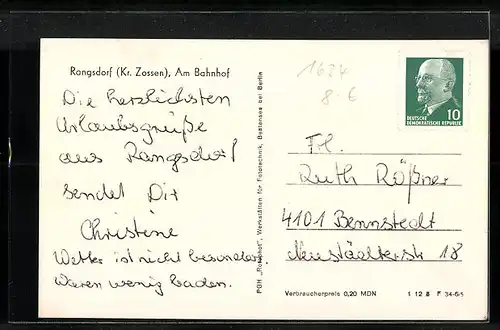 Rangsdorf (Kr. Zossen), Am Bahnhof
Die herzlichsten
Urlaubsgrüße
aus Rangsdorf
sendet Dir
Christine
Wetter ist nicht besonders.
Waren wenig baden.
PGH „Rotophot", Werkstätten für Fototechnik, Bestensee bei Berlin
1634
8.€
DEUTSCHE
DEMOKRATISCHE REPUBLIK
10
Frl.
Ruth Rößner
4101 Bennstedt
Neustädterstr 18
Verbraucherpreis 0,20 MDN
1 12 8 F 34-64